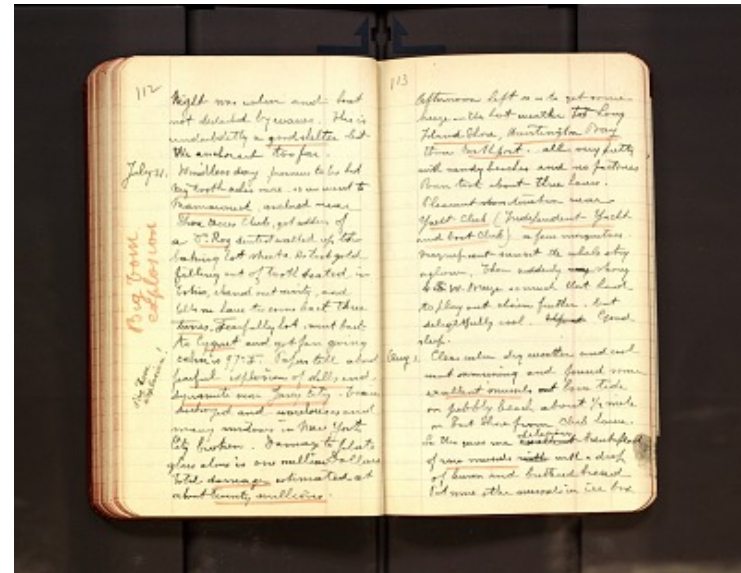 112
Night was calm and boat
not disturbed by waves. This is
undoubtedly a good shelter but
We anchored too far.
July 31.
Windless day promises to be hot
my tooth aches more so we went to
Mamaroneck, anchored near
Shore Acres Club, got address of
a Dr. Roy dentist walked up the
baking hot streets. Dr. took gold
filling out of tooth
cleaned out cavity, and
tells me have to come back three
times. Fearfully hot. went back
to Cygnet and got fan going
cabin is 97° F. Papers tell about
fearful explosion of shells and
dynamite near Jersey City. Towns
destroyed and warehouses and
many windows in New York
City broken. Damage to plate
glass alone is one million Dollars
Total damage estimated at
about twenty millions.
Big bom
explosion
Big Bom
explosion!
113
Afternoon left so as to get some
breeze in the hot weather to Long
Island Shore, Huntington Bay
then Northport. all very pretty
with sandy beaches and no factories
Run took about three hours.
Pleasant near
Yacht Club (Independent Yacht
and boat Club) a few mosquitoes.
Magnificent sunset the whole sky
aglow. Then suddenly strong
S.W. breeze so much that had
to play out chain further. but
delightfully cool. Good
sleep.
Aug 1.
Clear calm dry weather and cool
went swimming and found some
excellent mussels at low tide
on pebbly beach about 1/2 mile
on East Shore from Club house.
So this gave me delicious breakfast
of raw mussels with a drop
of lemon and buttered bread
Put some other mussels in ice box